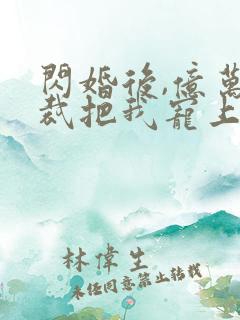 閃婚後,億萬
裁把我寵上
林偉生
未任同意禁止轉載